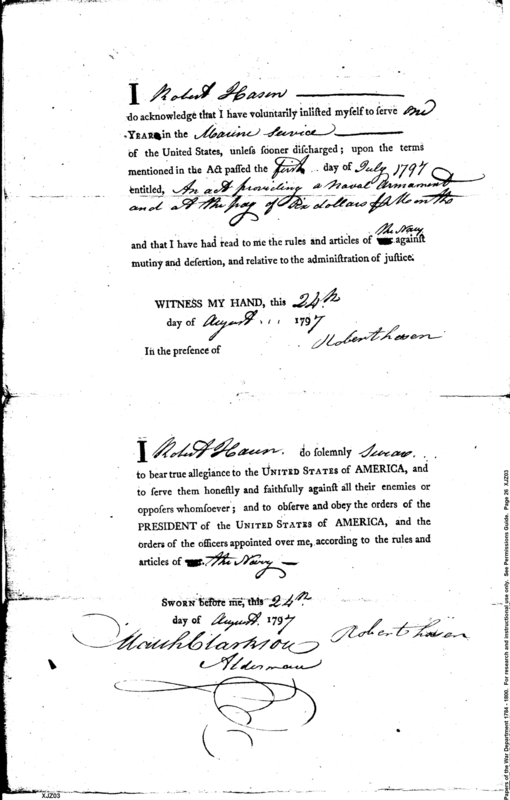 I Robert Hasen
do acknowledge that I have voluntarily inlisted myself to serve one
YEAR in the Marine Service
of the United States, unless sooner discharged; upon the terms
mentioned in the Act passed the first day of July 1797
entitled, An act providing a Naval Armament
and at the pay of Six dollars
the Navy
and that I have had read to me the rules and articles of against
mutiny and desertion, and relative to the administration of justice.
WITNESS MY HAND, this 24th
day of August 1797
Robert hasen
In the presence of
I Robert do solemnly swear
to bear true allegiance to the UNITED STATES of AMERICA, and
to serve them honestly and faithfully against all their enemies or
opposers whomsoever; and to observe and obey the orders of the
PRESIDENT of the UNITED STATES of AMERICA, and the
orders of the officers appointed over me, according to the rules and
articles of the Navy
SWORN before me, this 24th
day of August 1797
Clarkson Robert hasen
Alderman
XJZ03
Papers of the War Department 1784 - 1800. For research and instructional use only. See Permissions Guide. Page 26 XJZ03